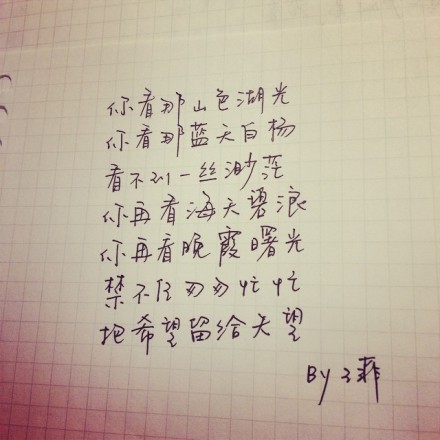 你看那山色湖光
你看那蓝天白杨
看不到一丝渺茫
你再看海天碧浪
你再看晚霞曙光
禁不住匆匆忙忙
把希望留给失望
BY 王菲